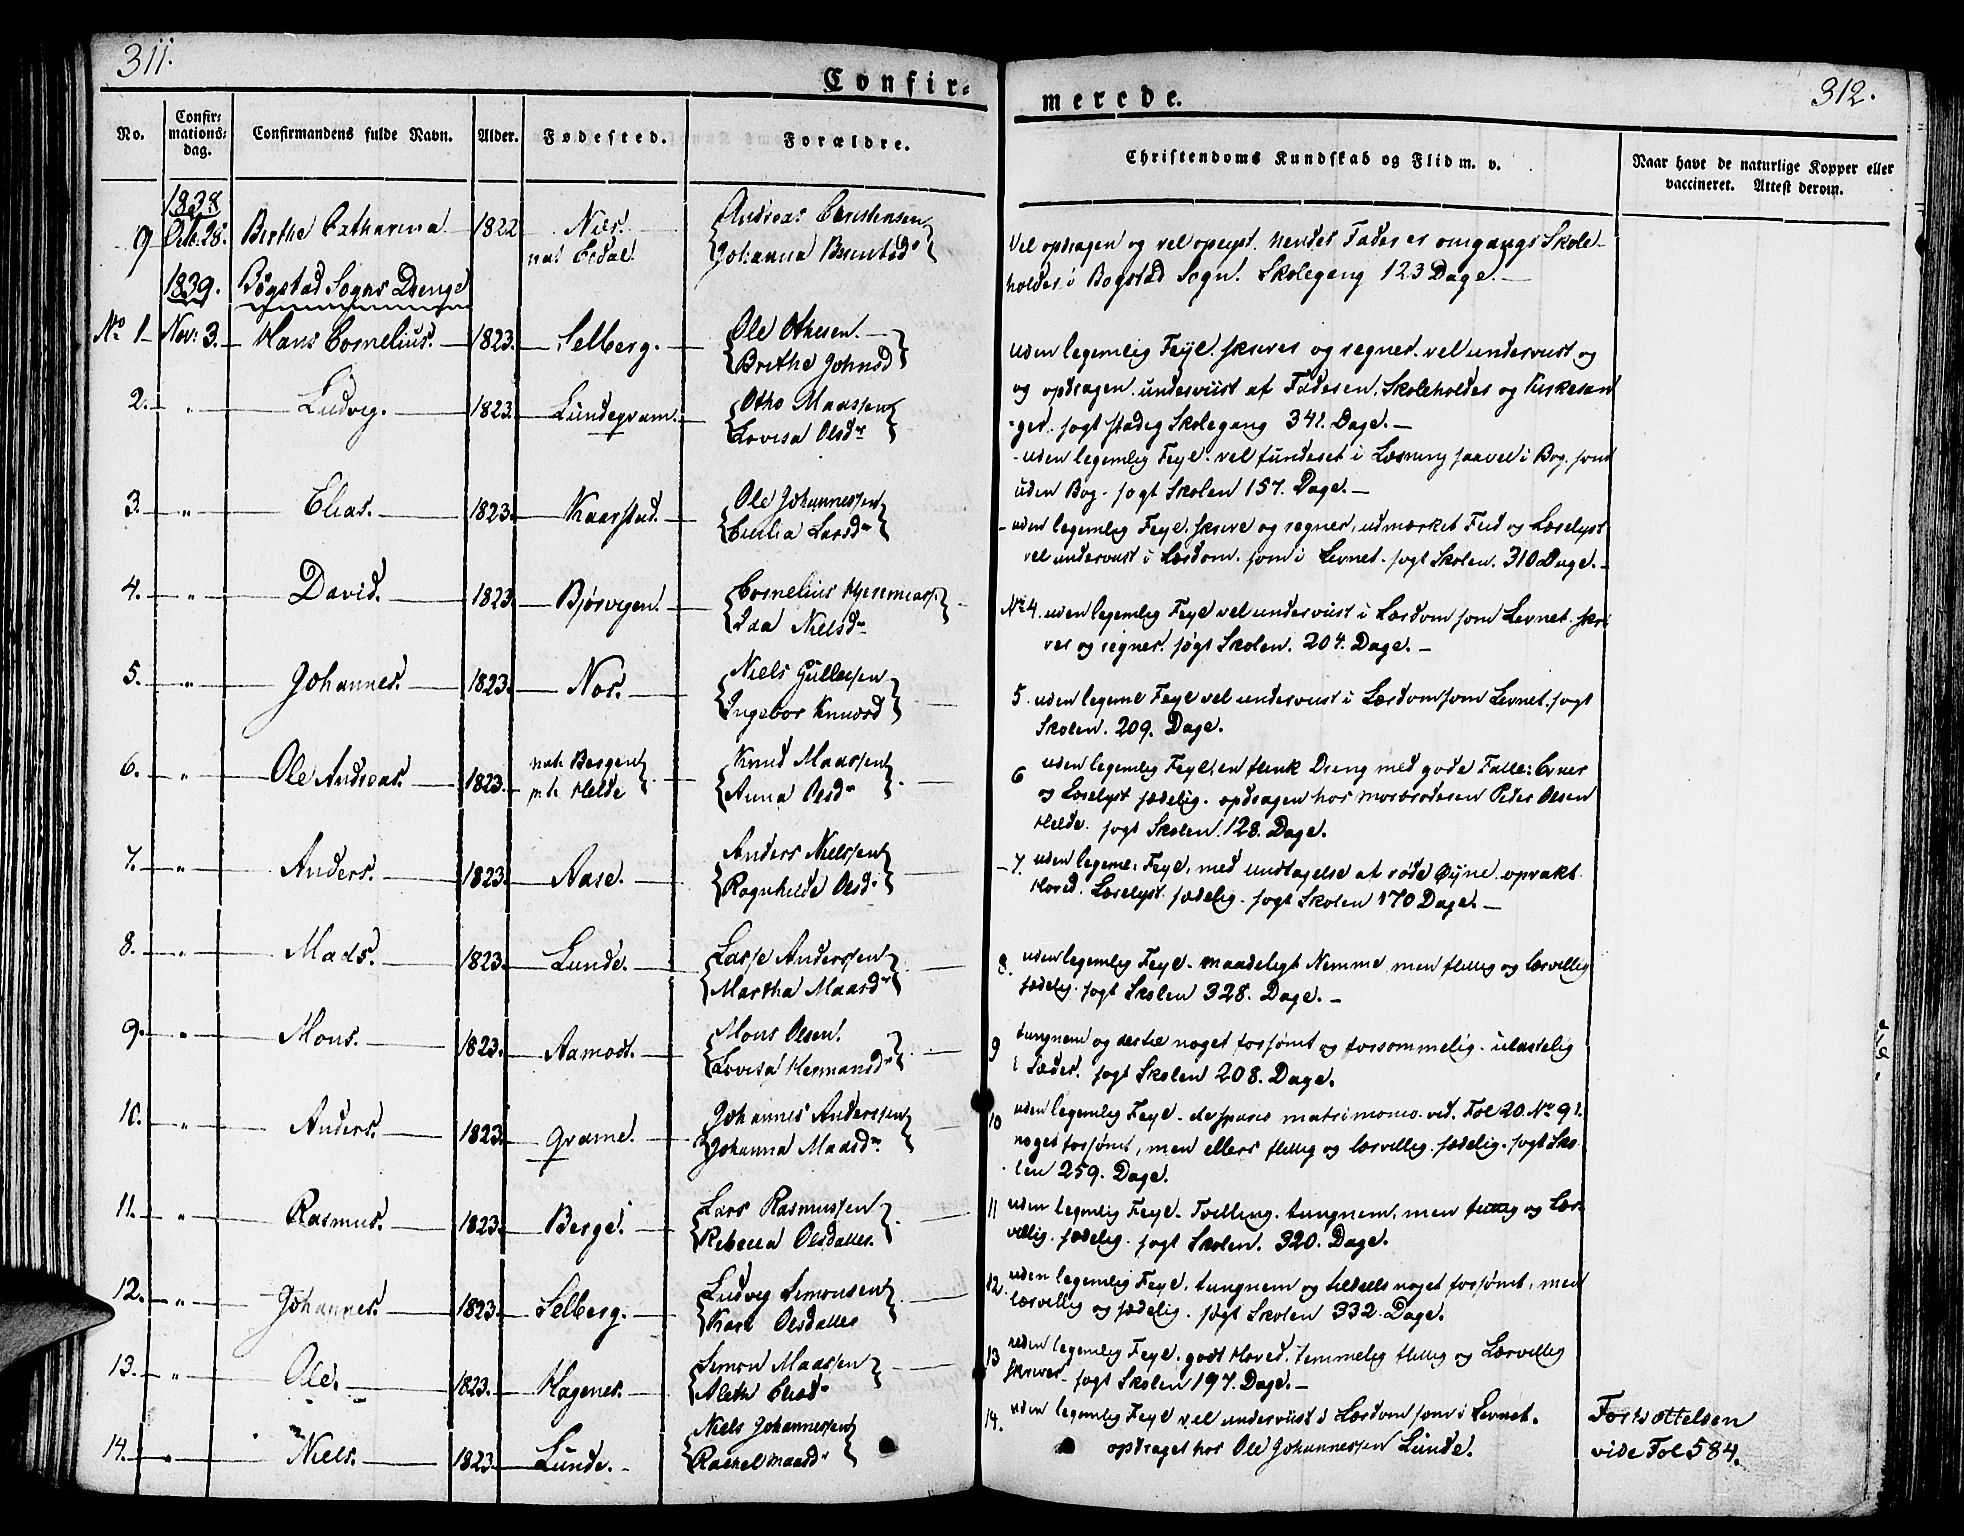 311.
Confir-
No.
Confir-
mations-
dag.
Confirmandens fulde Navn.
Alder.
Fødested.
Forældre.
1838
9 Oct: 28. Berthe Catharina 1822 Næs. Andreas Christensen
nat Johanna
1839. Bøgstad Sogns Drenge
No 1 Nov: 3. Hans Cornelius. 1823. Selberg. Ole Othesen.
Brithe Johnsd
2. " Ludvig. 1823. Lundegram. Otho Maassen
Lovisa Olsdr
3. " Elias. 1823. Kaarstad. Ole Johannessen
Cecilia Larsdr
4. " David. 1823. Bjørvigen. Cornelius
Ida Nielsdr
5. " Johannes. 1823. Nos. Niels Gullessen
Ingebor Knudsd
6. " Ole Andreas. 1823. nat: Bergen Knud Maassen
pt: Helde Anna Olsdr
7. " Anders. 1823. Aase. Anders Nielssen
Ragnhilde Olsd.
8. " Mads. 1823. Lunde. Lasse Anderssen
Martha Maasdr
9. " Mons. 1823. Aamot. Mons Olsen.
Lovisa Hermansdr
10. " Anders. 1823. Grame. Johannes Anderssen
Johanna Maasdr
11. " Rasmus. 1823. Berge. Lars Rasmussen
Rebecca Olsdatter.
12. " Johannes. 1823. Selberg. Ludvig Simonsen
Kari Olsdatter
13. " Ole. 1823. Hagenes. Simon Maassen
Aleth Eliasdr
14. " Niels. 1823. Lunde. Niels Johannessen
Rachel Maasdr
312.
merede.
Christendoms Kundskab og Flid m. v.
Naar havt de naturlige Kopper eller
vaccineret. Attest derom.
Vel opdragen og vel oplyst. hendes Fader er omgangs Skole-
holder i Bogstad Sogn. Skolegang 123 Dage.
uden legemlig Feyl. skriver og regner. vel underviist og
og opdragen underviist af Faderen, Skoleholder og Kirkesan
ger. søgt stadig Skolegang 341. Dage.
uden legemlig Feyl. vel funderet i Læsning saavel i Bog. som
uden Bog. søgt Skolen 157. Dage.
uden legemlig Feyl. skrive og regner, udmærket Flid og Læselyst
vel underviist i Lærdom. som i Levnet. søgt Skolen. 310 Dage.
No 4. uden legemlig Feyl vel underviist i Lærdom som Levnet. skri
ver og regner. søgt Skolen. 204. Dage.
5. uden legeml Feyl vel underviist i Lærdom som Levnet. søgt
Skolen. 209. Dage.
6 uden legemlig Feyl, en flink Dreng med gode Evner
og Læselyst sædelig. opdragen hos Morbroderen Peder Olsen
Helde. søgt Skolen. 128. Dage.
7. uden legeml: Feyl, med undtagelse af røde Øyne. opvakt
Hoved. Læselyst. sædelig. søgt Skolen 170 Dage.
8. uden legemlig Feyl. maadeligt Nemme men flittig og lærvillig
sædelig. søgt Skolen 328. Dage.
9 tungnem og dertil noget forsømt og forsømmelig. ulastelig
i Sæder. søgt Skolen 208. Dage.
10 uden legemlig Feyl. matrimonio. vid. Fol 20. No 91.
noget forsømt, men ellers flittig og lærvillig. sædelig. søgt Sko
len 259. Dage.
11 uden legemlig Feyl. Tvilling. tungnem, men flittig og Lær-
villig. sædelig. søgt Skolen. 320. Dage.
12. uden legemlig Feyl. tungnem og tildeels noget forsømt, men
lærvillig og sædelig. søgt Skolen 332 Dage.
13 uden legemlig Feyl. godt Hoved. temmelig flittig og Lærvillig
skriver. søgt Skolen 197. Dage.
14. uden legemlig Feyl vel underviist i Lærdom som i Levnet.
opdraget hos Ole Johannessen Lunde.
Fortsættelsen
vide Fol 584.